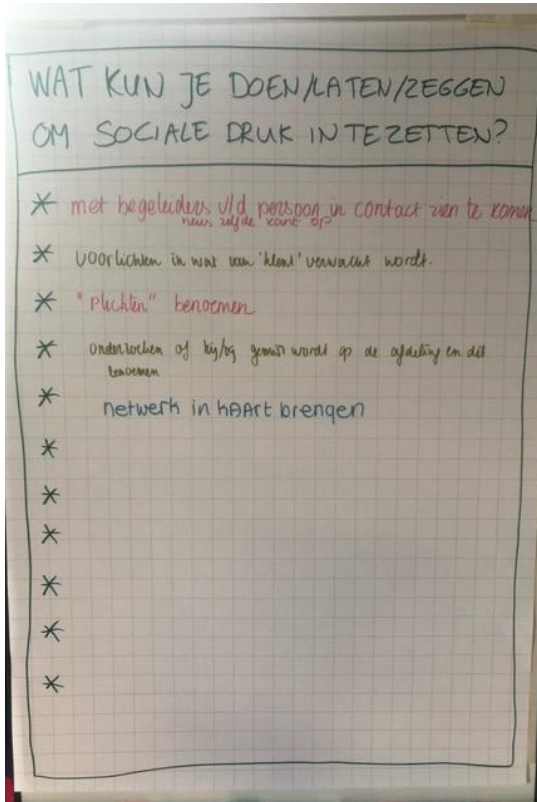 WAT KUN JE DOEN/LATEN/ZEGGEN
OM SOCIALE DRUK IN TE ZETTEN?
* met begeleiders v/d persoon in contact zien te komen
neus zelfde kant op
* voorlichten in wat van 'klant' verwacht wordt.
* "plichten" benoemen
* onderzoeken of hij/zij gemist wordt op de afdeling en dit
benoemen
* netwerk in kAArt brengen
*
*
*
*
*
*